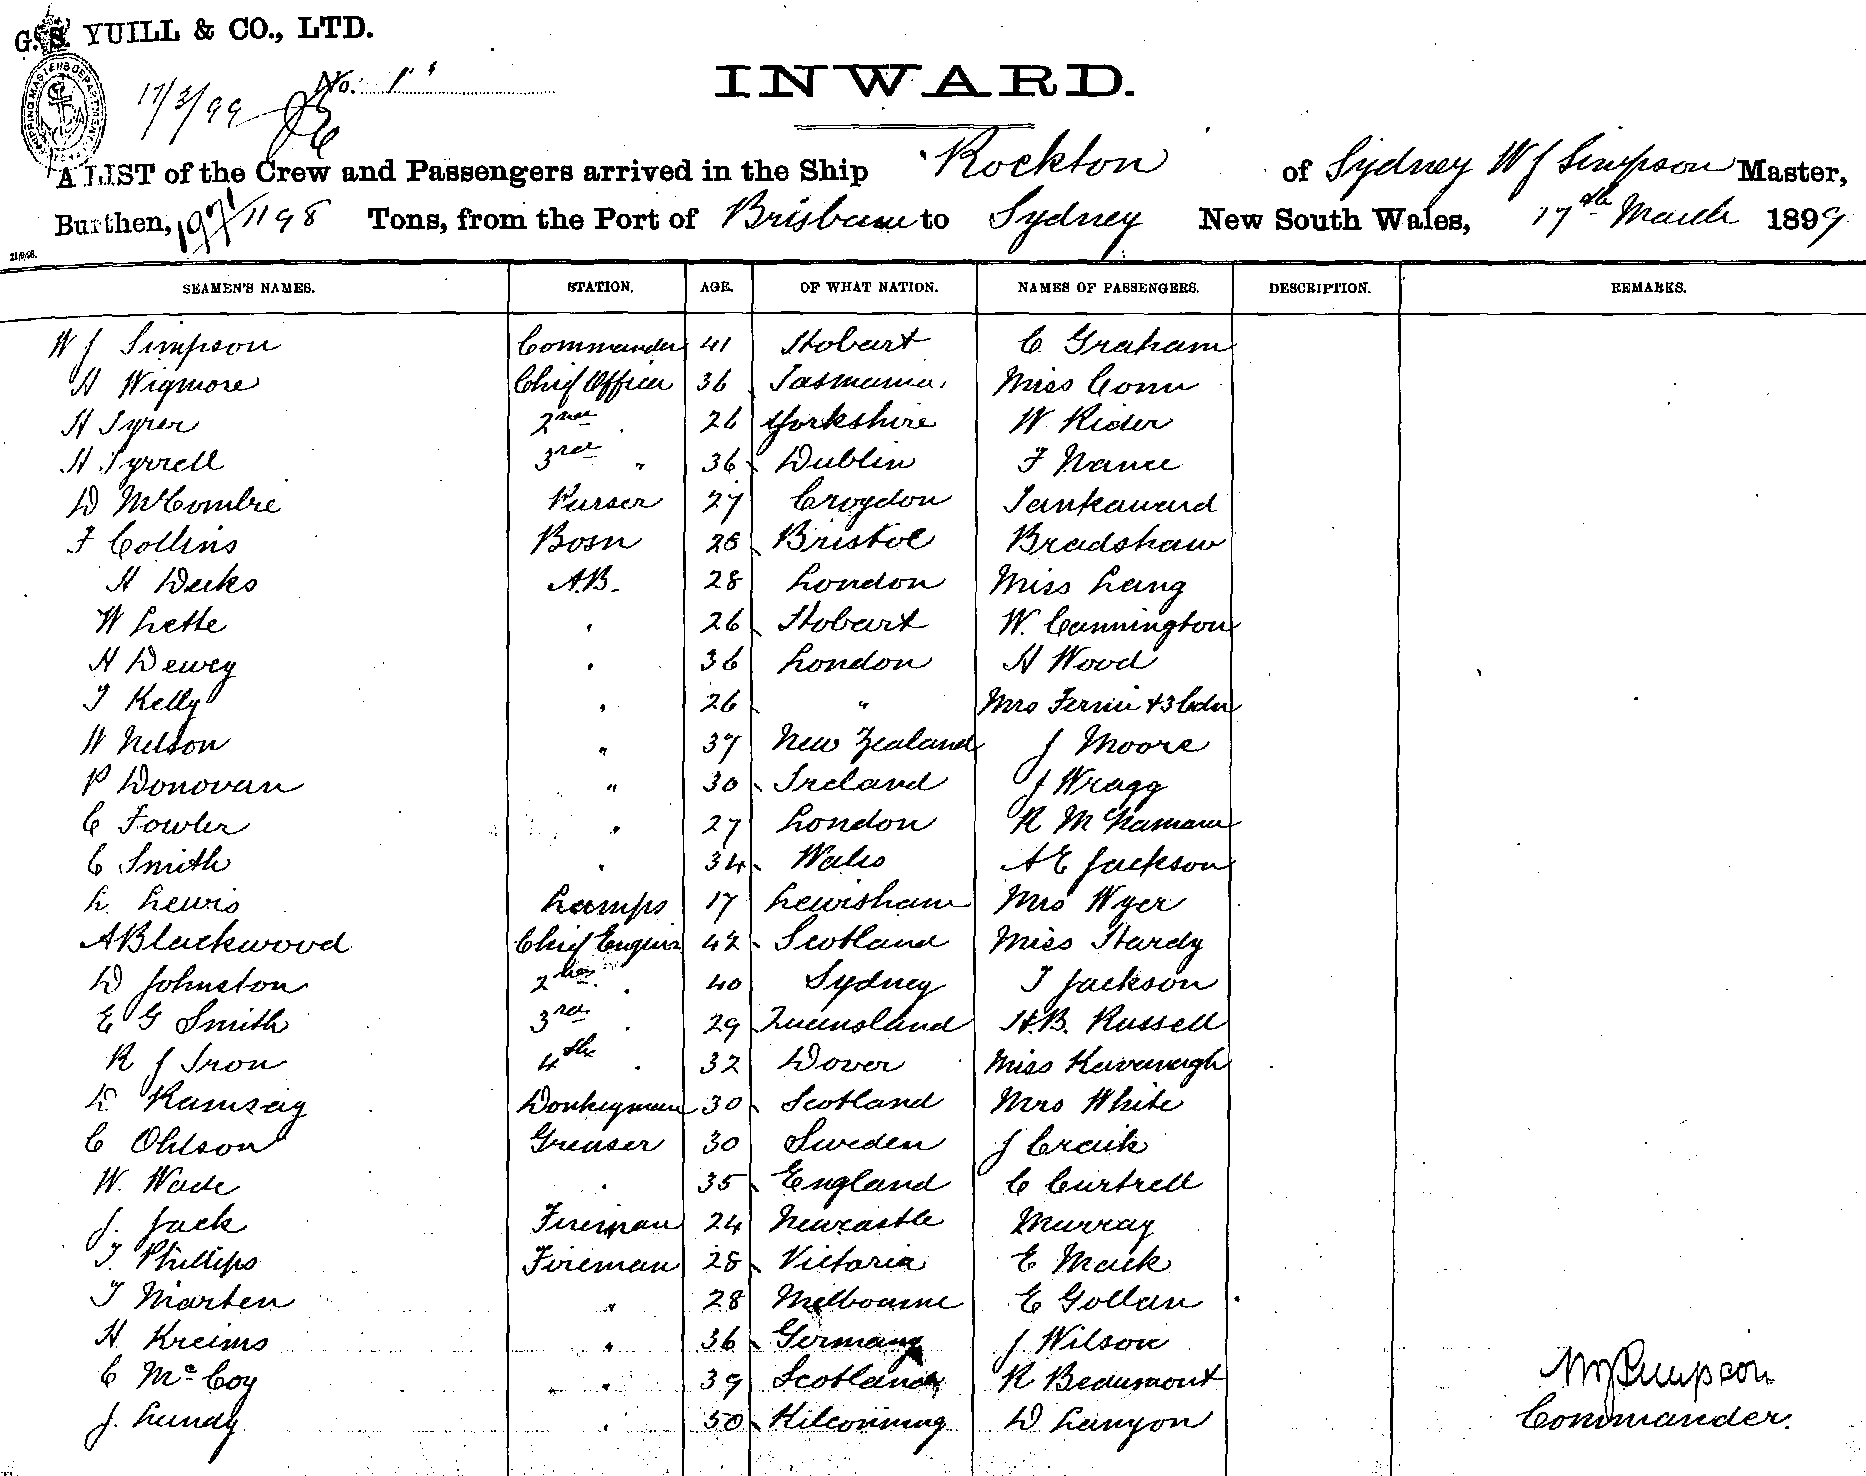 G. S. YUILL & CO., LTD.
17/3/99 No. 1
INWARD.
A LIST of the Crew and Passengers arrived in the Ship Rockton of Sydney W J Simpson Master,
Burthen, 1971/1198 Tons, from the Port of Brisbane to Sydney New South Wales, 17th March 1899
SEAMEN'S NAMES. STATION. AGE. OF WHAT NATION. NAMES OF PASSENGERS. DESCRIPTION. REMARKS.
W J Simpson Commander 41 Hobart C Graham
H Wigmore Chief Officer 36 Tasmania Miss Conn
H Tyrer 2nd " 26 Yorkshire W Rider
H Tyrrell 3rd " 36 Dublin F Nance
D McCombie Purser 27 Croydon Tankaward
F Collins Bosn 28 Bristol Bradshaw
H Deeks A.B. 28 London Miss Lang
W Lette " 26 Hobart W. Cannington
H Dewey " 36 London H Wood
T Kelly " 26 " Mrs Fernie + 3 Cdn
W Nelson " 37 New Zealand J Moore
P Donovan " 30 Ireland J Wragg
C Fowler " 27 London R McNamara
C Smith " 34 Wales A E Jackson
L. Lewis Lamps 17 Lewisham Mrs Wyer
A Blackwood Chief Engineer 42 Scotland Miss Hardy
D Johnston 2nd " 40 Sydney T Jackson
E G Smith 3rd " 29 Queensland H.B. Russell
R J Iron 4th " 32 Dover Miss Kavanagh
D Ramsay Donkeyman 30 Scotland Mrs White
C Ohlson Greaser 30 Sweden J Craik
W. Wade " 35 England C Curtrell
J. Jack Fireman 24 Newcastle Murray
T. Phillips Fireman 28 Victoria E Mack
T Marten " 28 Melbourne E Gollan
H Kreims " 36 Germany J Wilson
C McCoy " 39 Scotland R Beaumont
J. Lundy " 50 D Lanyon
W J Simpson
Commander.